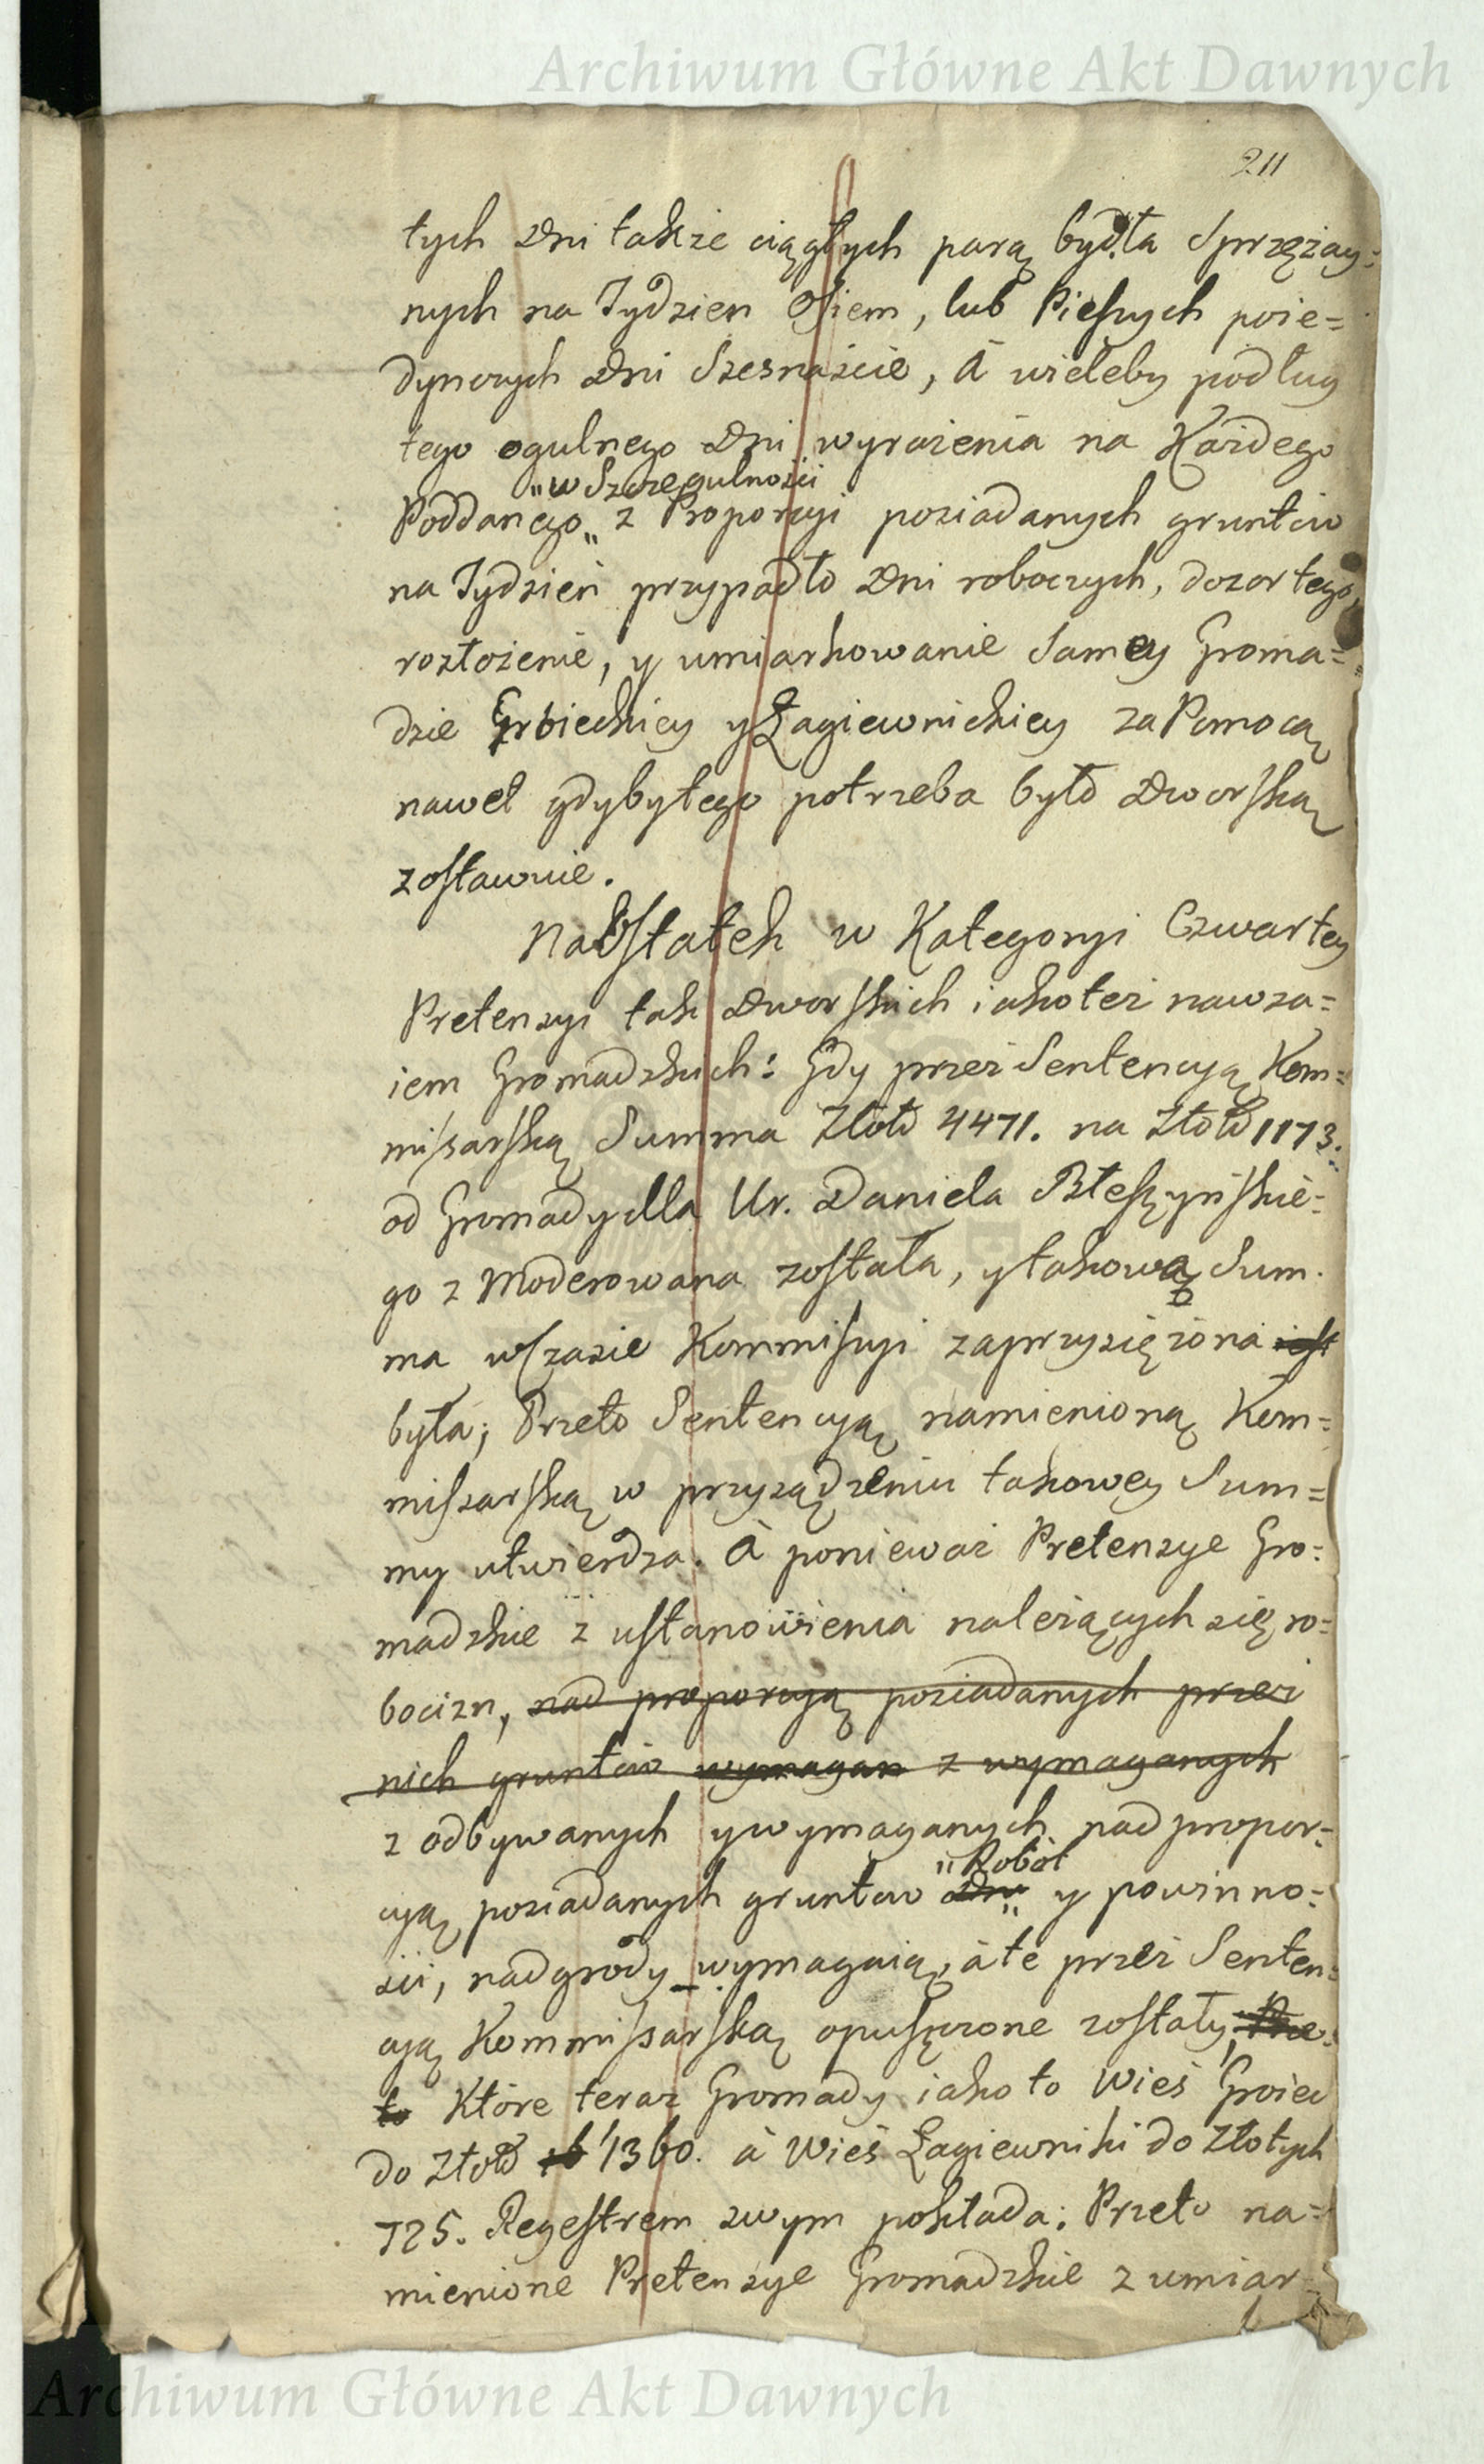 Archiwum Główne Akt Dawnych
211
tych Dni takze ciągłych parą bydła Sprzężay=
nych na Tydzien Osiem, lub Pieszych poie=
dynczych Dni Szesnaście, à wieleby podług
tego ogulnego Dni wyrażenia na Każdego
"w Szczegulności
Poddanego„ z Proporcyi posiadanych gruntow
na Tydzień przypadło Dni roboczych, dozor tego,
rozłożenie, y umiarkowanie Samey Groma=
dzie Groieckiey y Łagiewnickiey za Pomocą
nawet gdyby tego potrzeba było Dworską
zostawuie.
Naostatek w Kategoryi Czwartey
Pretensyi tak Dworskich iako też nawza=
iem Gromadzkich: Gdy przez Sentencyą Kom=
missarską Summa Złotd 4471. na Złotd 1173.
od Gromady dla Ur. Daniela Błeszyńskie=
go z Moderowana została, y takową Sum.
ma w Czasie Kommissyi zaprzysiężona iest
była; Przeto Sentencyą namienioną Kom=
missarską w przysądzeniu takowey Sum=
my utwierdza. à ponieważ Pretensye Gro=
madzkie z ustanowienia należących się ro=
bocizn, nad proporcyą posiadanych przez
nich gruntow wymagan z wymaganych
z odbywanych y wymaganych nad propor=
"Robót
cyą posiadanych gruntow Dni„ y powinno=
ści, nadgrody wymagaią, à te przez Senten=
cyą Kommissarską opuszczone zostały, Prze=
to Które teraz Gromady iako to Wieś Groiec
do Złotd 1360. à Wieś Łagiewniki do Złotych
725. Regestrem swym pokłada; Przeto na=
mienione Pretensye Gromadzkie z umiar
Archiwum Główne Akt Dawnych